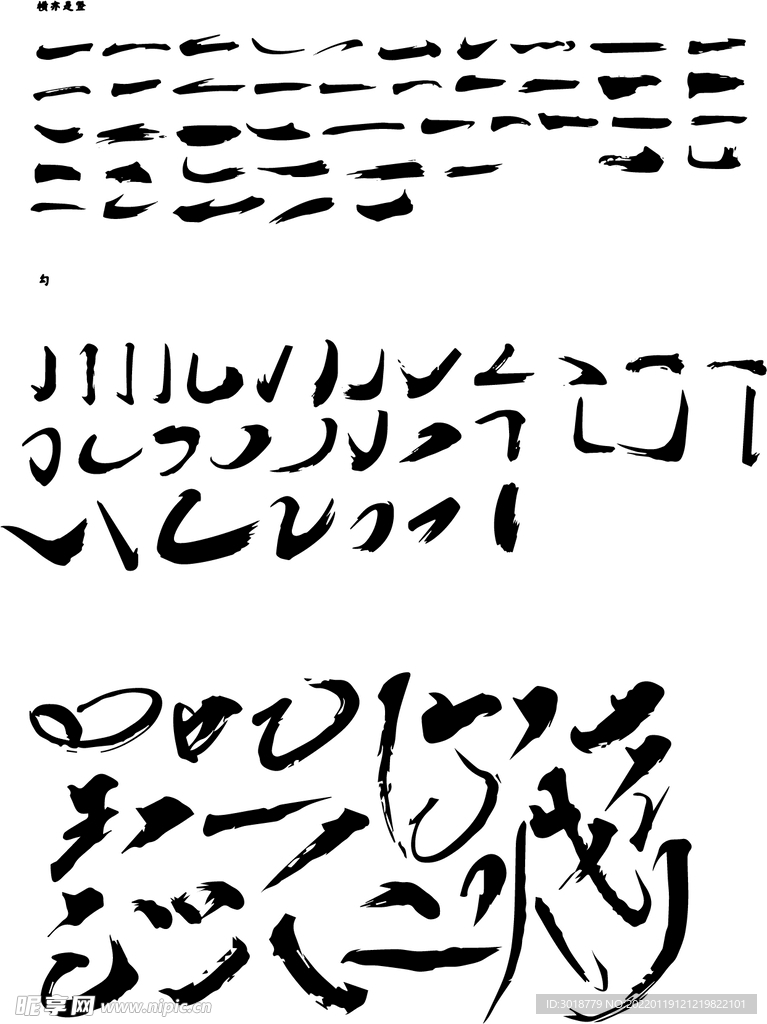 横亦是竖
勾
昵享网 www.nipic.cn
ID:3018779 NO:20220119121219822101